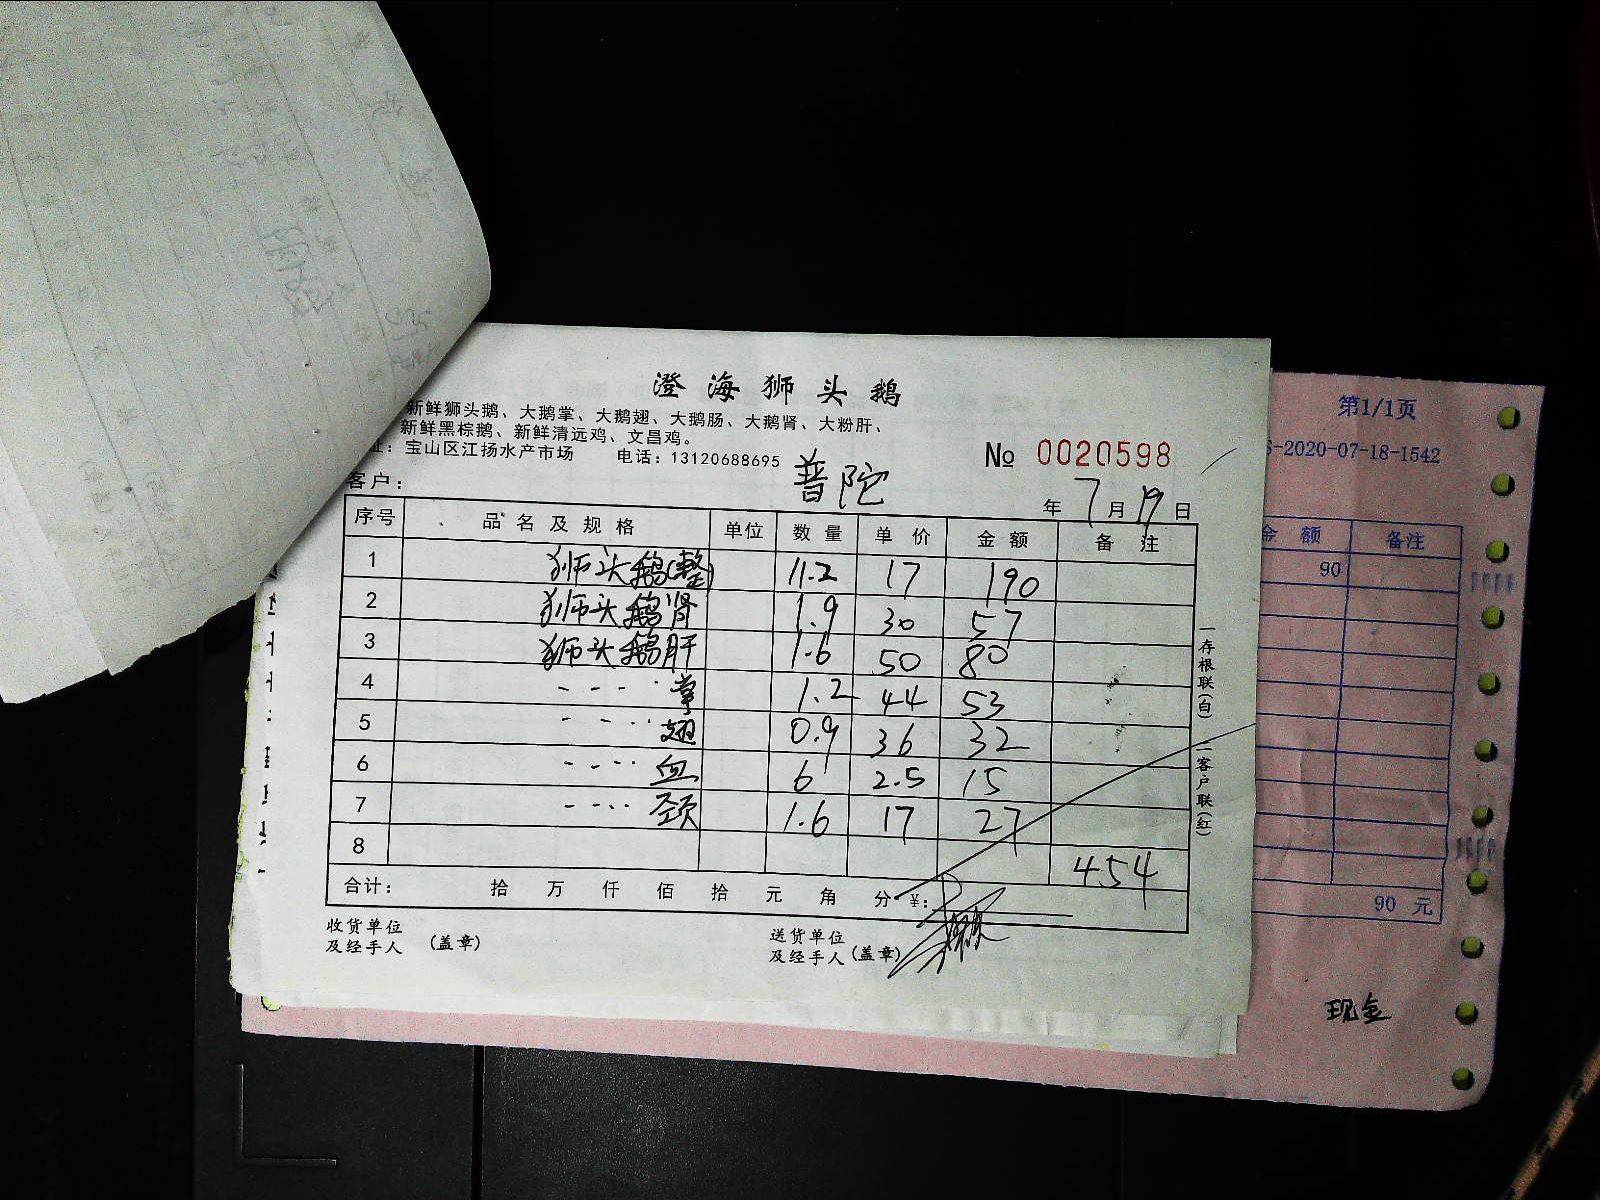 澄海狮头鹅
新鲜狮头鹅、大鹅掌、大鹅翅、大鹅肠、大鹅肾、大粉肝、
新鲜黑棕鹅、新鲜清远鸡、文昌鸡。
址：宝山区江扬水产市场 电话：13120688695
№ 0020598
客户： 普陀 年 7 月 19 日
序号 品名及规格 单位 数量 单价 金额 备注
1 狮头鹅(整) 11.2 17 190
2 狮头鹅肾 1.9 30 57
3 狮头鹅肝 1.6 50 80
4 ---- 掌 1.2 44 53
5 ---- 翅 0.9 36 32
6 ---- 血 6 2.5 15
7 ---- 颈 1.6 17 27
8 454
合计： 拾 万 仟 佰 拾 元 角 分 ¥：
收货单位
及经手人 (盖章)
送货单位
及经手人 (盖章)
一存根联(白) 二客户联(红)
第1/1页
S-2020-07-18-1542
金额 备注
90
90 元
现金